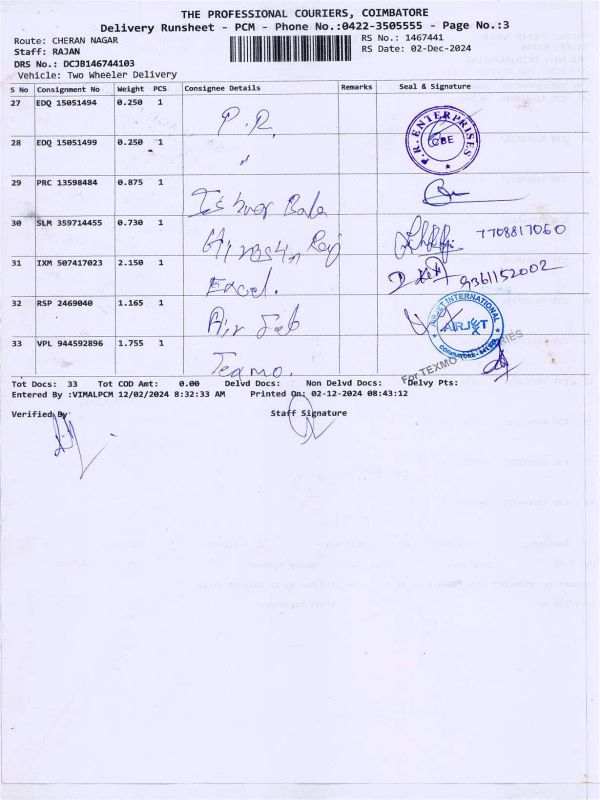 THE PROFESSIONAL COURIERS, COIMBATORE
Delivery Runsheet - PCM - Phone No.:0422-3505555 - Page No.:3
Route: CHERAN NAGAR
RS No.: 1467441
Staff: RAJAN
RS Date: 02-Dec-2024
DRS No.: DCJB146744103
Vehicle: Two Wheeler Delivery
S No Consignment No Weight PCS Consignee Details Remarks Seal & Signature
27 EDQ 15051494 0.250 1 P.R. P.R.ENTERPRISES CBE
28 EDQ 15051499 0.250 1 "
29 PRC 13598484 0.875 1 Bala
30 SLM 359714455 0.730 1 Raj 7708817060
31 IXM 507417023 2.150 1 Excel. 9361152002
32 RSP 2469040 1.165 1 Air AIRJET INTERNATIONAL AIRJET
33 VPL 944592896 1.755 1 Texmo. For TEXMO
Tot Docs: 33 Tot COD Amt: 0.00 Delvd Docs: Non Delvd Docs: Delvy Pts:
Entered By :VIMALPCM 12/02/2024 8:32:33 AM Printed On: 02-12-2024 08:43:12
Verified By
Staff Signature